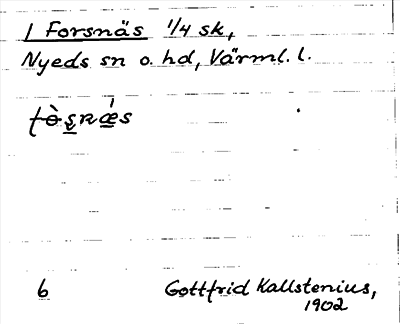 1 Forsnäs 1/4 sk,
Nyeds sn o. hd, Värml. l.
6
Gottfrid Kallstenius,
1902